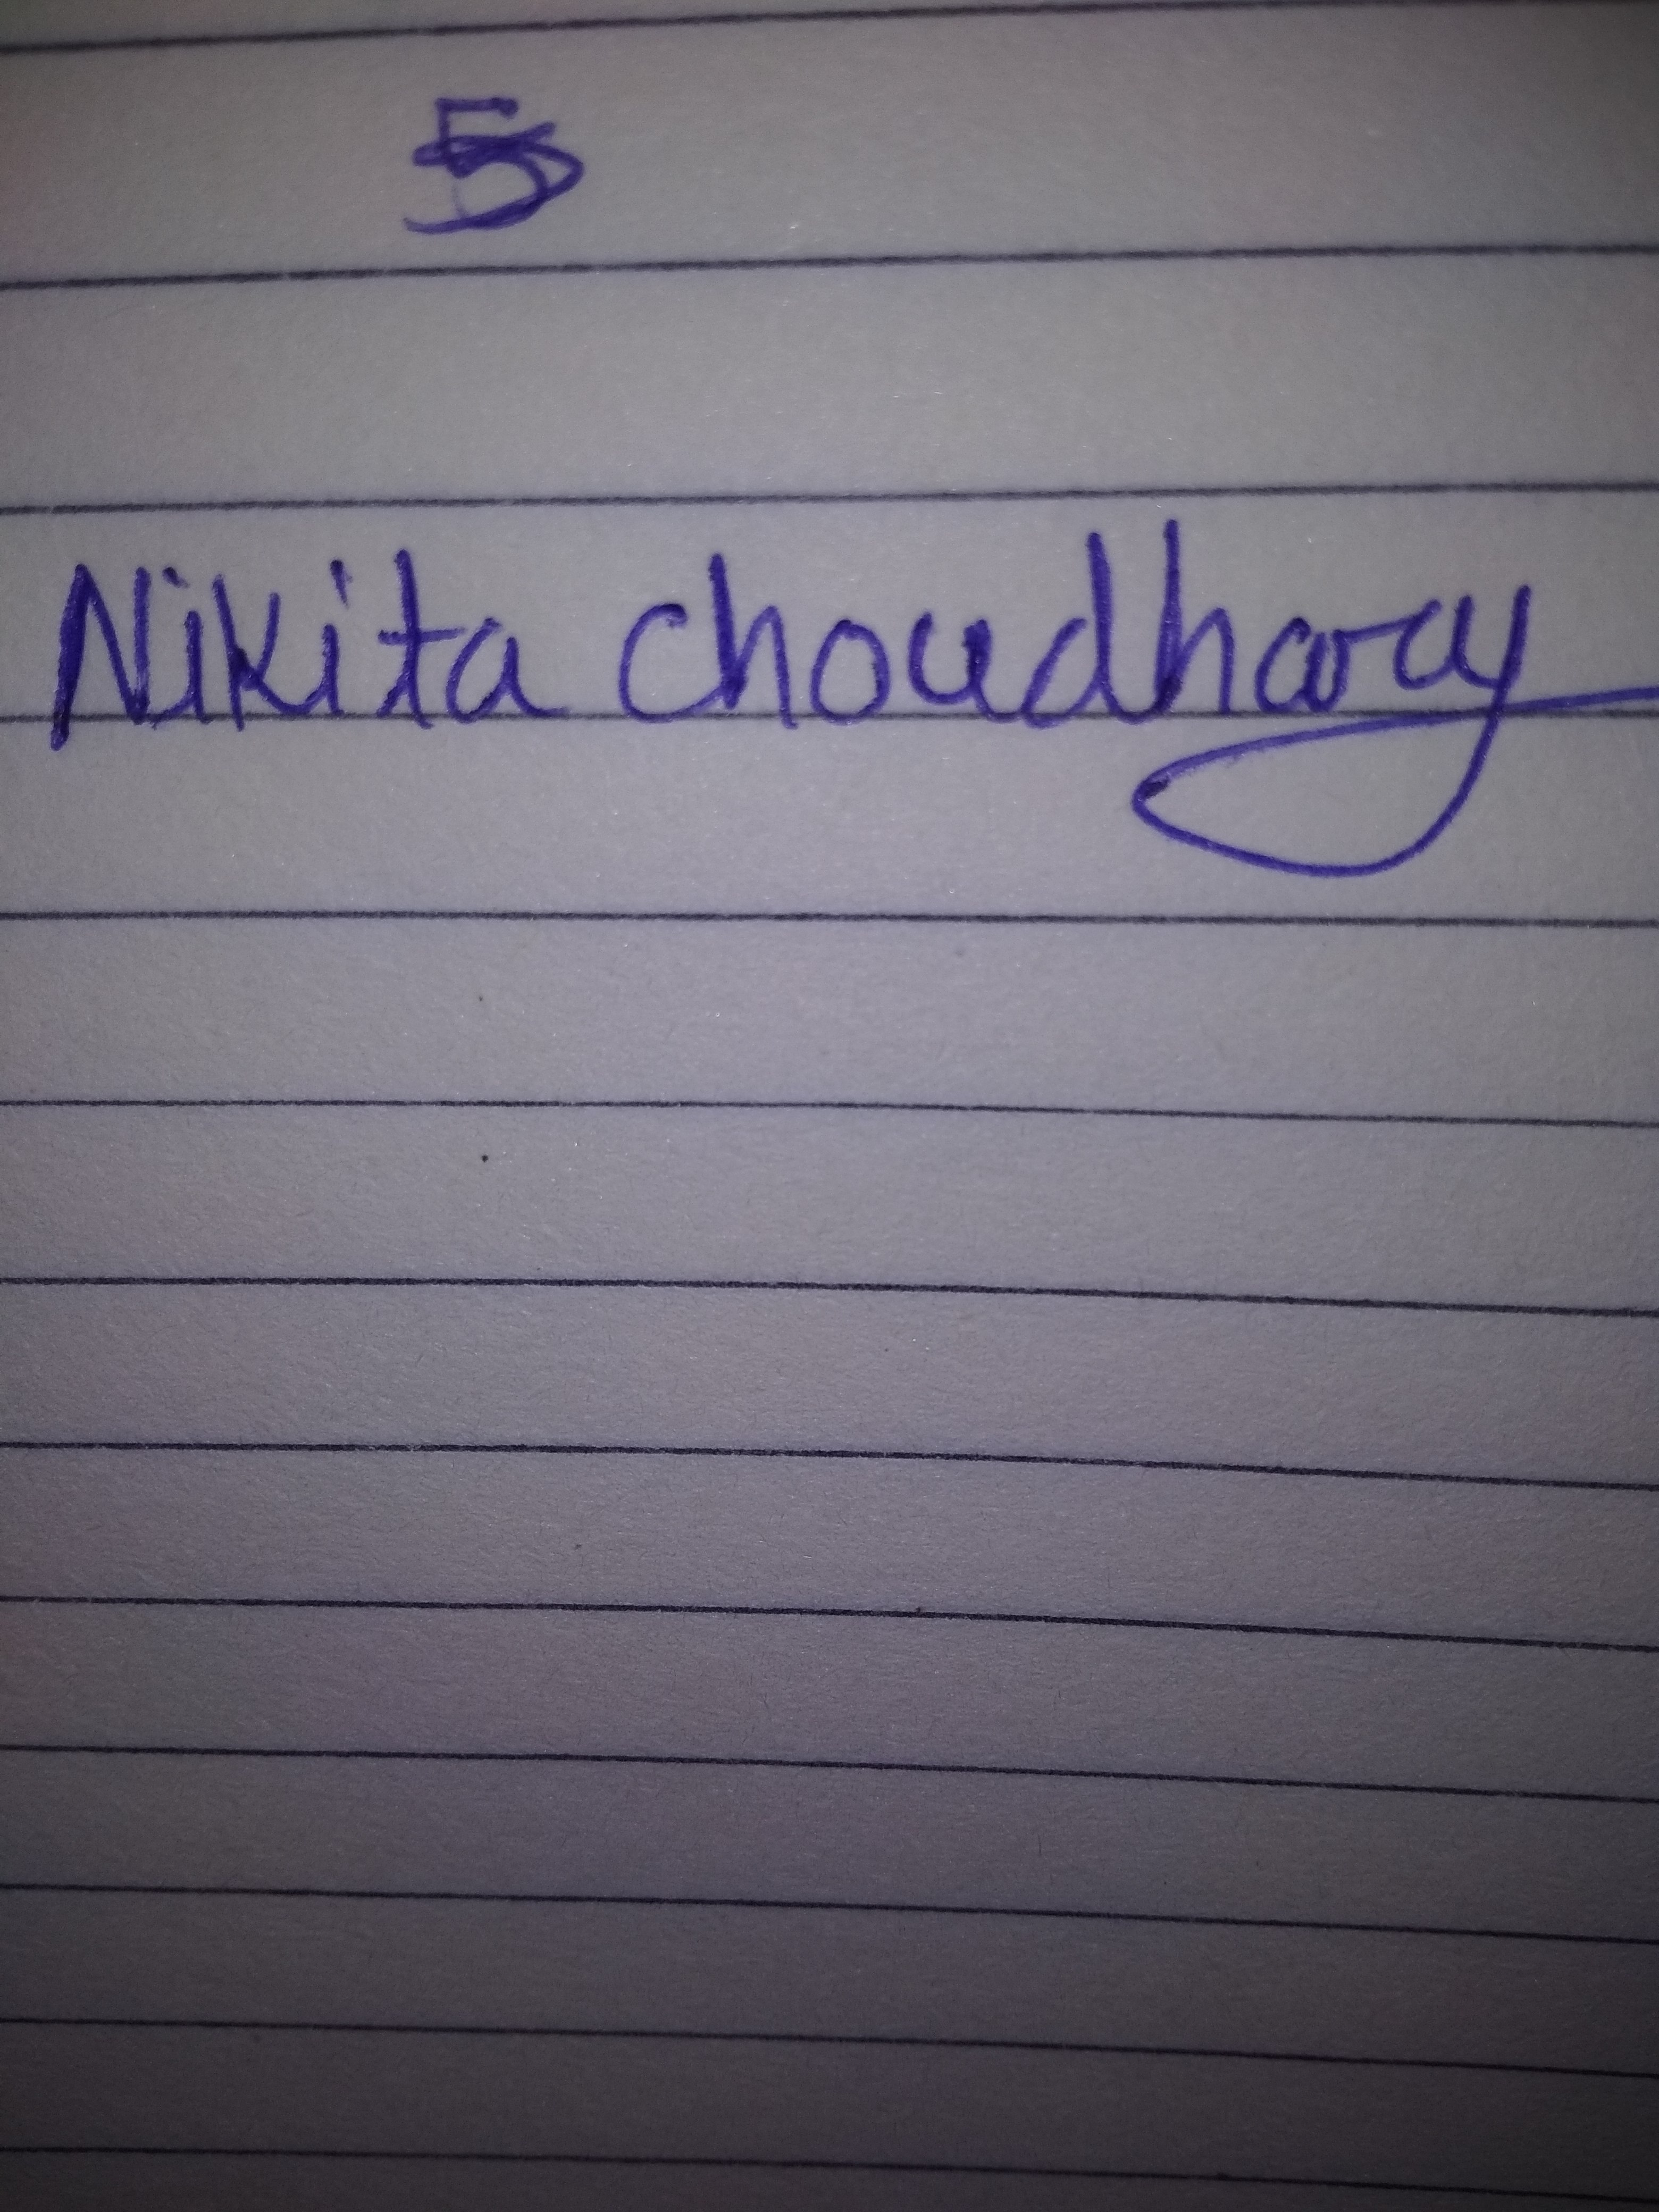 5
Nikita choudhary